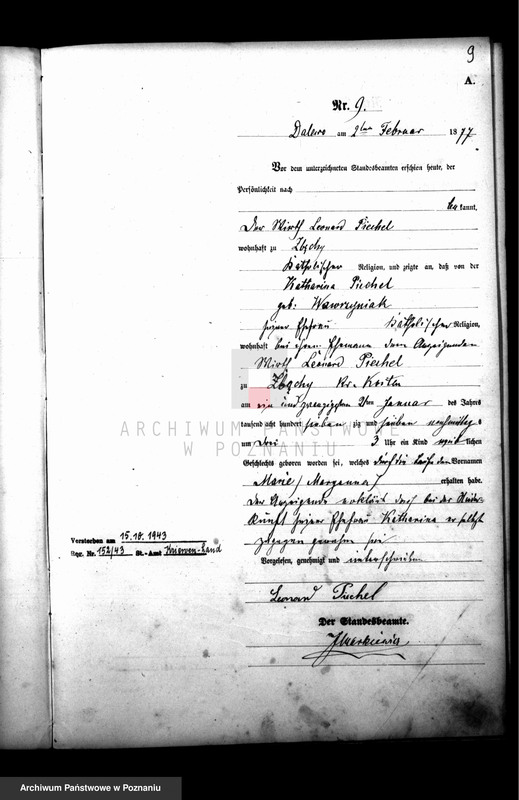 9
A.
Nr. 9.
Dalewo am 2ten Februar 1877
Vor dem unterzeichneten Standesbeamten erschien heute, der
Persönlichkeit nach
be kannt,
Der Wirth Leonard Piechel
wohnhaft zu Zbęchy
katholischer Religion, und zeigte an, daß von der
Katharina Piechel
geb: Wawrzyniak
seiner Ehefrau katholischer Religion,
wohnhaft bei ihrem Ehemann dem Anzeigenden
Wirth Leonard Piechel
zu Zbęchy Kr. Kosten
am ein und zwanzigsten Januar des Jahres
tausend acht hundert sieben zig und sieben nachmittags
um Drei 3 Uhr ein Kind weib lichen
Geschlechts geboren worden sei, welches durch die Taufe den Vornamen
Marie (Maryanna) erhalten habe.
Der Anzeigende erklärt daß bei der Nieder-
kunft seiner Ehefrau Katharina er selbst
zugegen gewesen sei
Vorgelesen, genehmigt und unterschrieben
Leonard Piechel
Der Standesbeamte.
Verstorben am 15.10.1943
Reg. Nr. 152/43 St.-Amt Kriewen-Land
ARCHIWUM PAŃSTWOWE
W POZNANIU
Archiwum Państwowe w Poznaniu